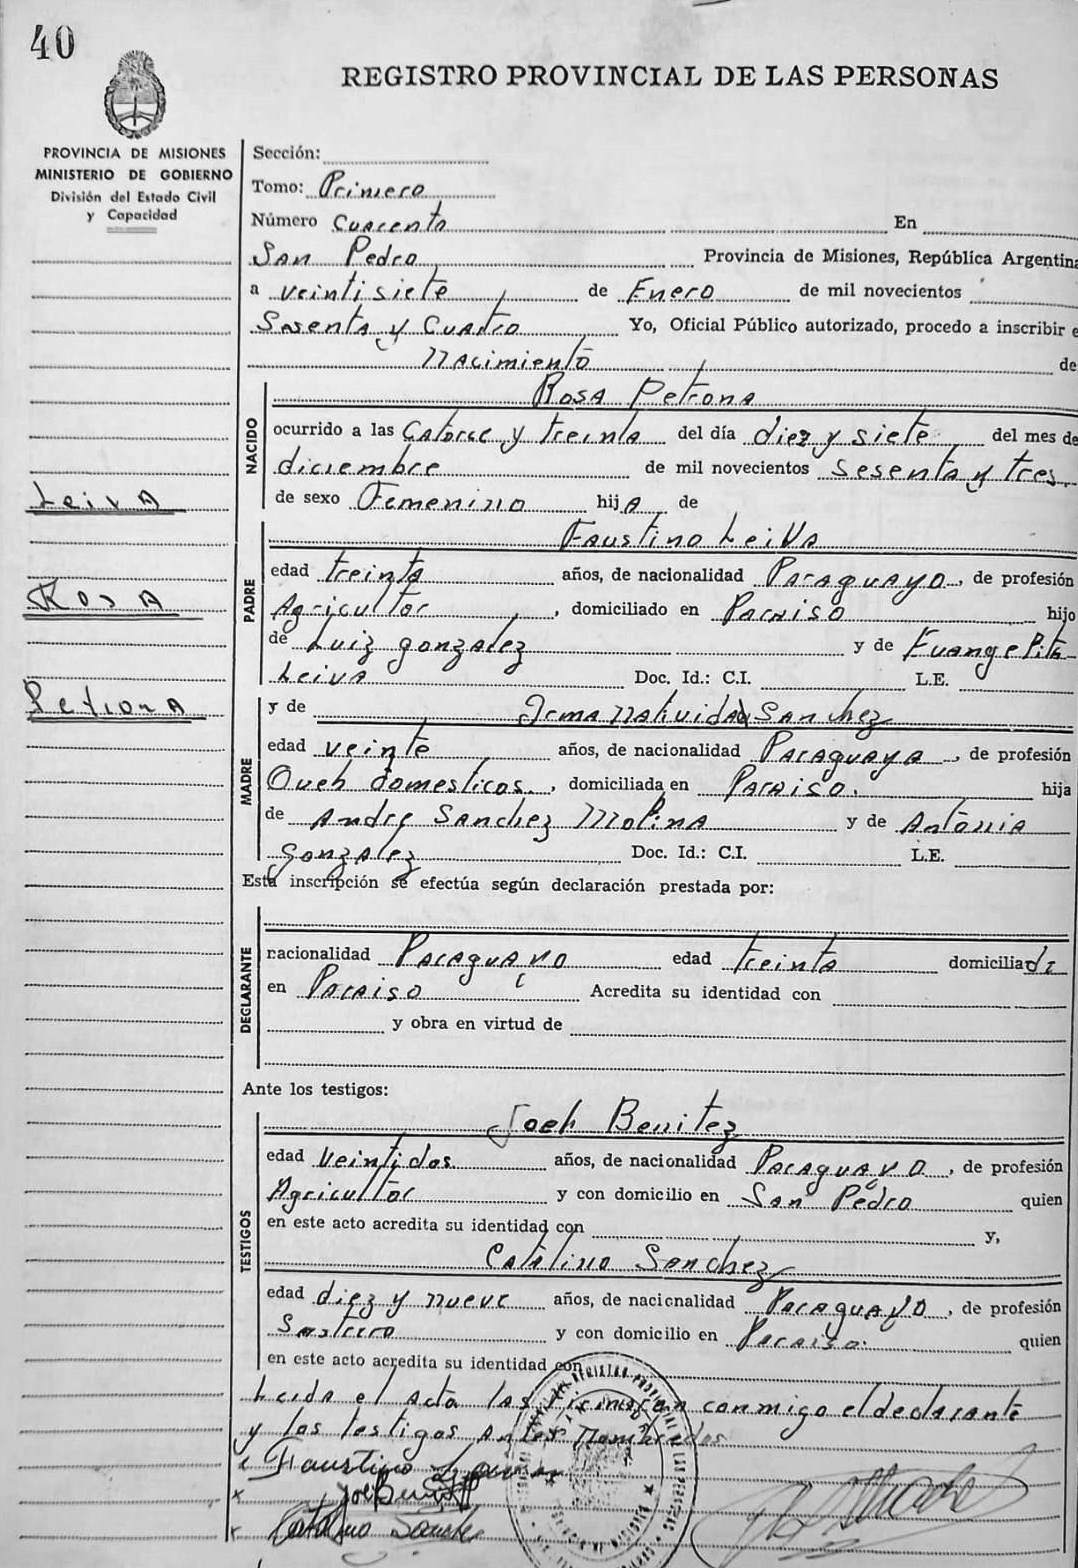 40
REGISTRO PROVINCIAL DE LAS PERSONAS
PROVINCIA DE MISIONES
MINISTERIO DE GOBIERNO
División del Estado Civil
y Capacidad
Sección:
Tomo: Primero
Número Cuarenta En
San Pedro Provincia de Misiones, República Argentina
a veintisiete de Enero de mil novecientos
Sesenta y Cuatro Yo, Oficial Público autorizado, procedo a inscribir e
Nacimiento de
Rosa Petrona
NACIDO
ocurrido a las Catorce y treinta del día diez y siete del mes de
diciembre de mil novecientos sesenta y tres
de sexo Femenino hija de
Leiva
Faustino Leiva
PADRE
edad treinta años, de nacionalidad Paraguayo, de profesión
Rosa
Agricultor, domiciliado en Paraiso hijo
de Luiz gonzalez y de Evangelita
Leiva Doc. Id.: C.I. L.E.
Petrona
y de Irma Natividad Sanchez
MADRE
edad veinte años, de nacionalidad Paraguaya, de profesión
Queh domesticos, domiciliada en Paraiso. hija
de Andre Sanchez Molina y de Antonia
Gonzalez Doc. Id.: C.I. L.E.
Esta inscripción se efectúa según declaración prestada por:
DECLARANTE
nacionalidad Paraguayo edad treinta domiciliado
en Paraiso Acredita su identidad con
y obra en virtud de
Ante los testigos:
Joeh Benitez
TESTIGOS
edad veintidos años, de nacionalidad Paraguayo, de profesión
Agricultor y con domicilio en San Pedro quien
en este acto acredita su identidad con y,
Catalino Sanchez
edad diez y nueve años, de nacionalidad Paraguayo, de profesión
Sastrero y con domicilio en Paraiso. quien
en este acto acredita su identidad con
Leida el acta las firman conmigo el declarante
y los testigos antes nombrados
Faustino
Catalino Sanchez